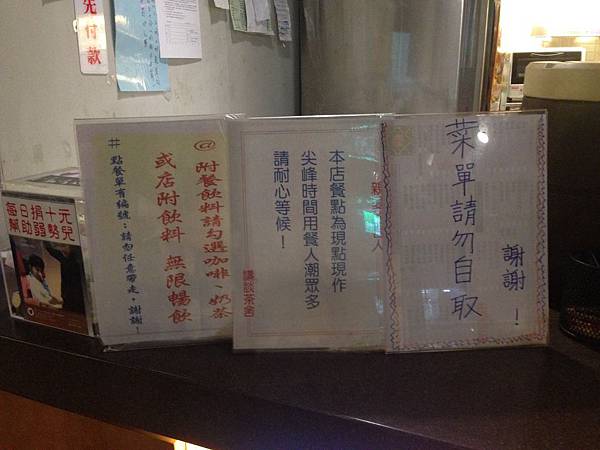 先付款
每日捐十元
幫助弱勢兒
@附餐飲料請勾選咖啡、奶茶
或店附飲料 無限暢飲
#點餐單有編號:請勿任意帶走,謝謝!
本店餐點為現點現作
尖峰時間用餐人潮眾多
請耐心等候!
講談茶舍
菜單請勿自取
謝謝!